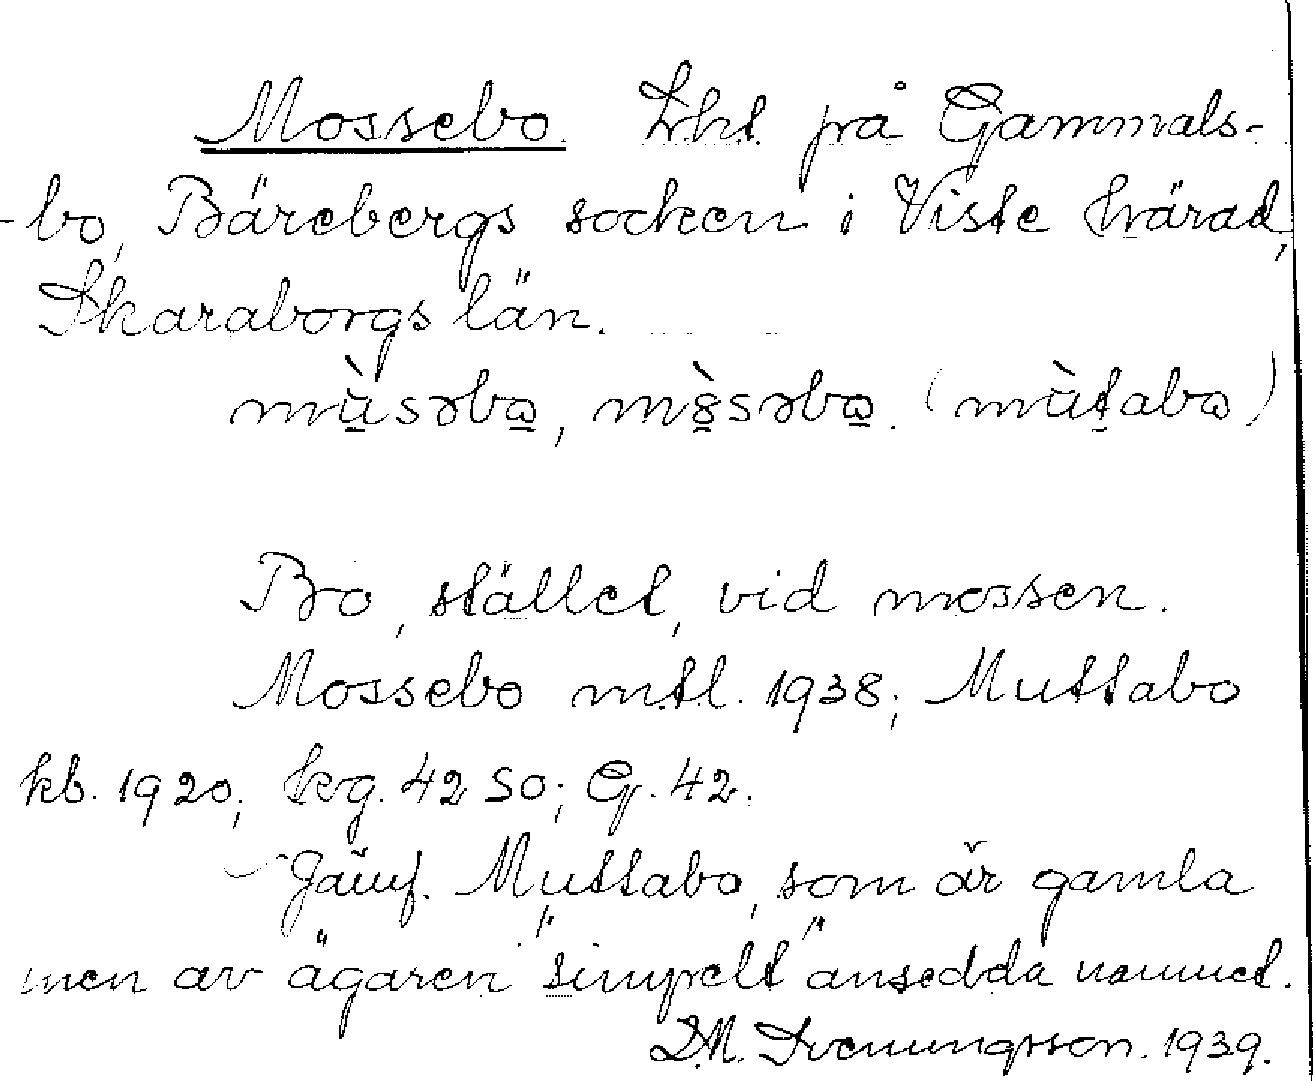 Mossebo. Lht på Gammals-
-bo, Bärebergs socken i Viste härad,
Skaraborgs län.
mùsəbɷ, mòsəbɷ. (mùtabɷ)
Bo, stället, vid mossen.
Mossebo mtl. 1938; Muttabo
kb. 1920; kvg. 42 SO; G. 42.
Jämf. Muttabo, som är gamla
men av ägaren "simpelt" ansedda namnet.
D.M. Svenungsson. 1939.